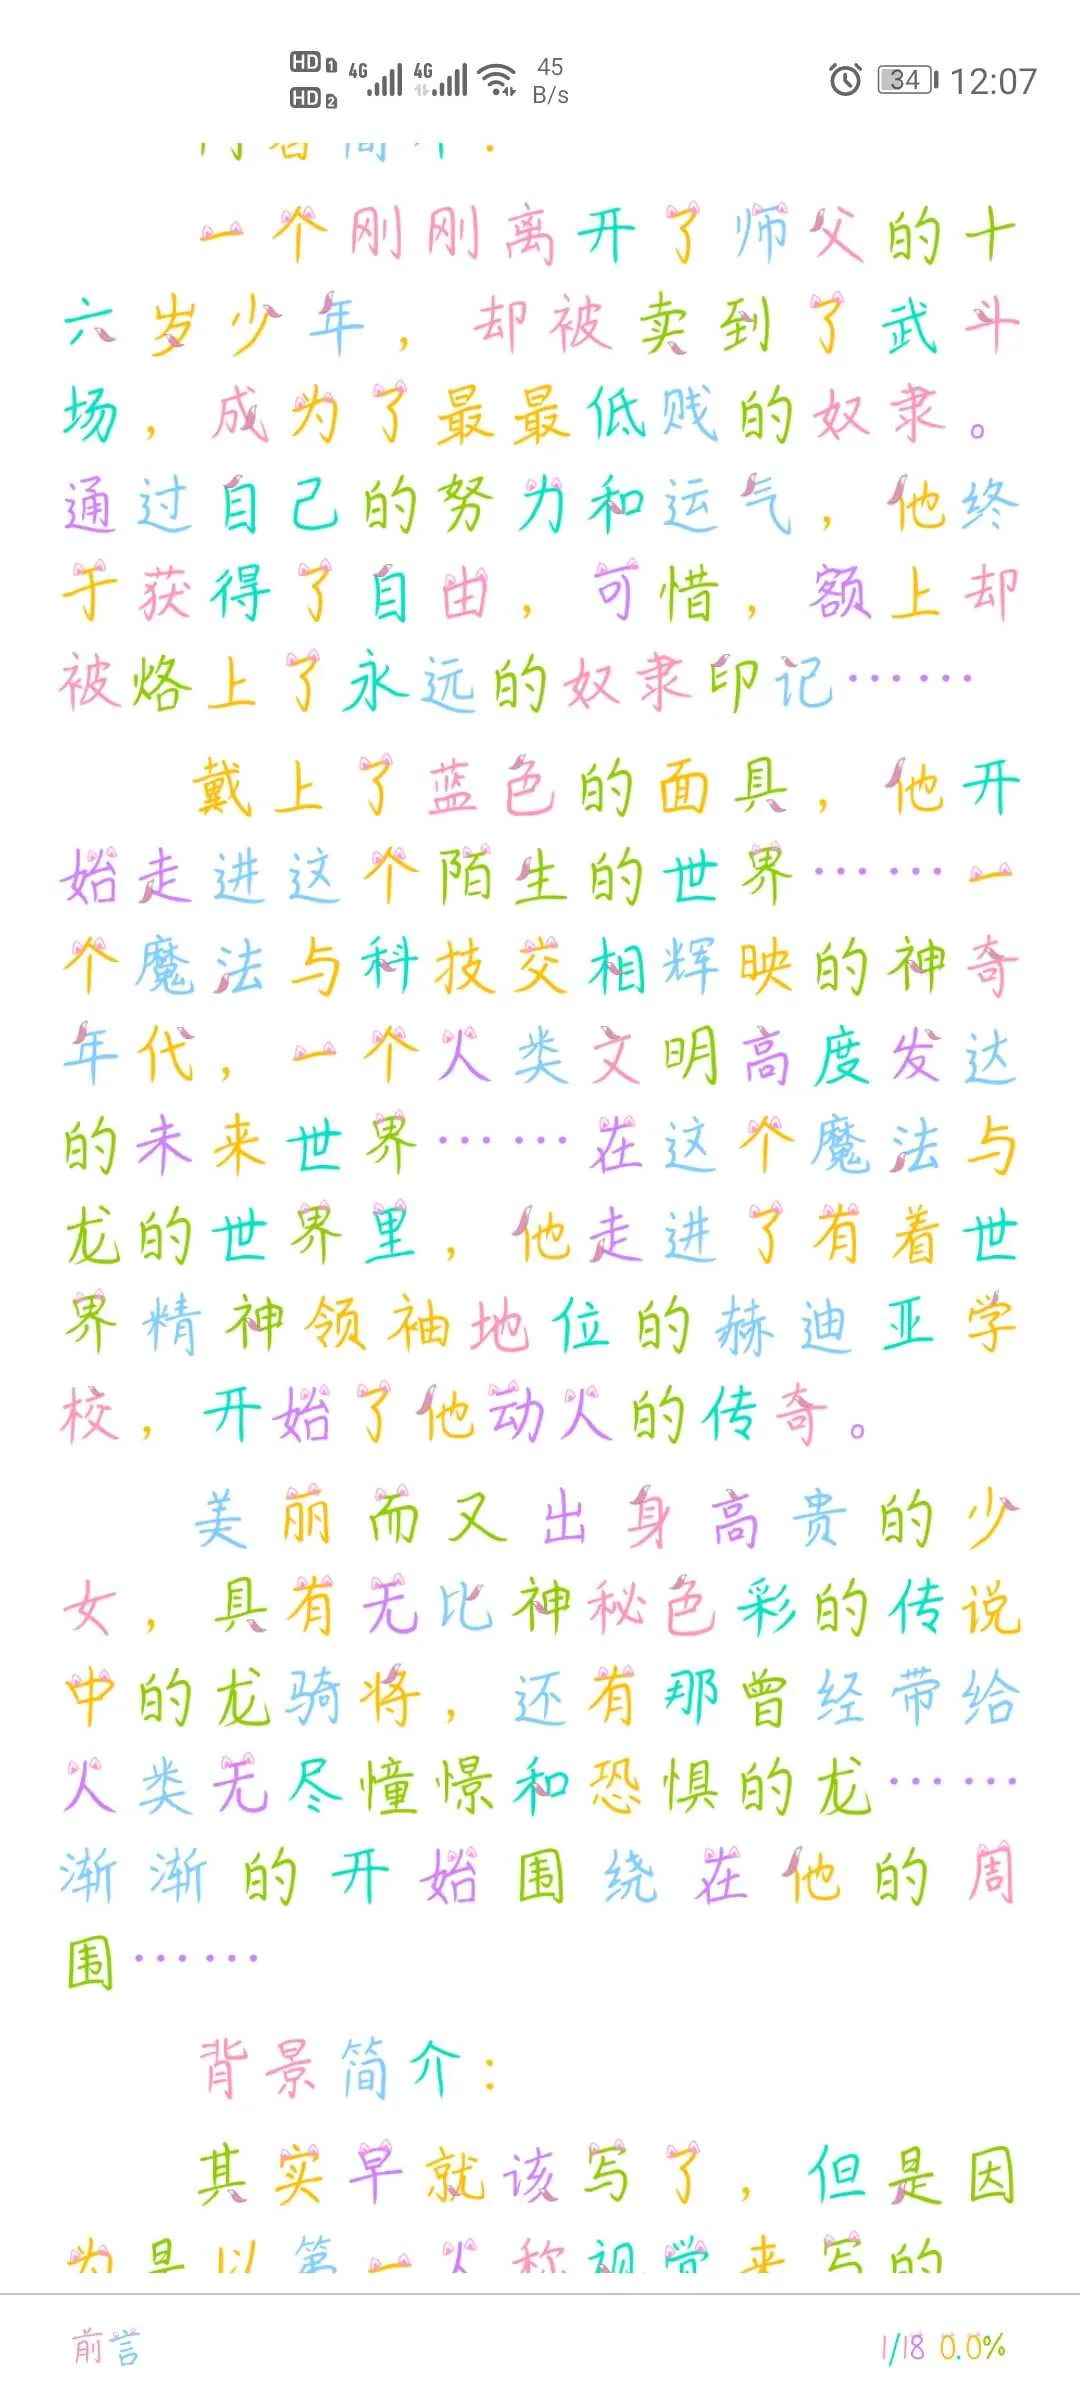 HD 1 4G 4G 45 34 12:07
HD 2 B/s
简介：
一个刚刚离开了师父的十
六岁少年，却被卖到了武斗
场，成为了最最低贱的奴隶。
通过自己的努力和运气，他终
于获得了自由，可惜，额上却
被烙上了永远的奴隶印记……
戴上了蓝色的面具，他开
始走进这个陌生的世界……一
个魔法与科技交相辉映的神奇
年代，一个人类文明高度发达
的未来世界……在这个魔法与
龙的世界里，他走进了有着世
界精神领袖地位的赫迪亚学
校，开始了他动人的传奇。
美丽而又出身高贵的少
女，具有无比神秘色彩的传说
中的龙骑将，还有那曾经带给
人类无尽憧憬和恐惧的龙……
渐渐的开始围绕在他的周
围……
背景简介：
其实早就该写了，但是因
为是以第一人称视觉来写的
前言 1/18 0.0%